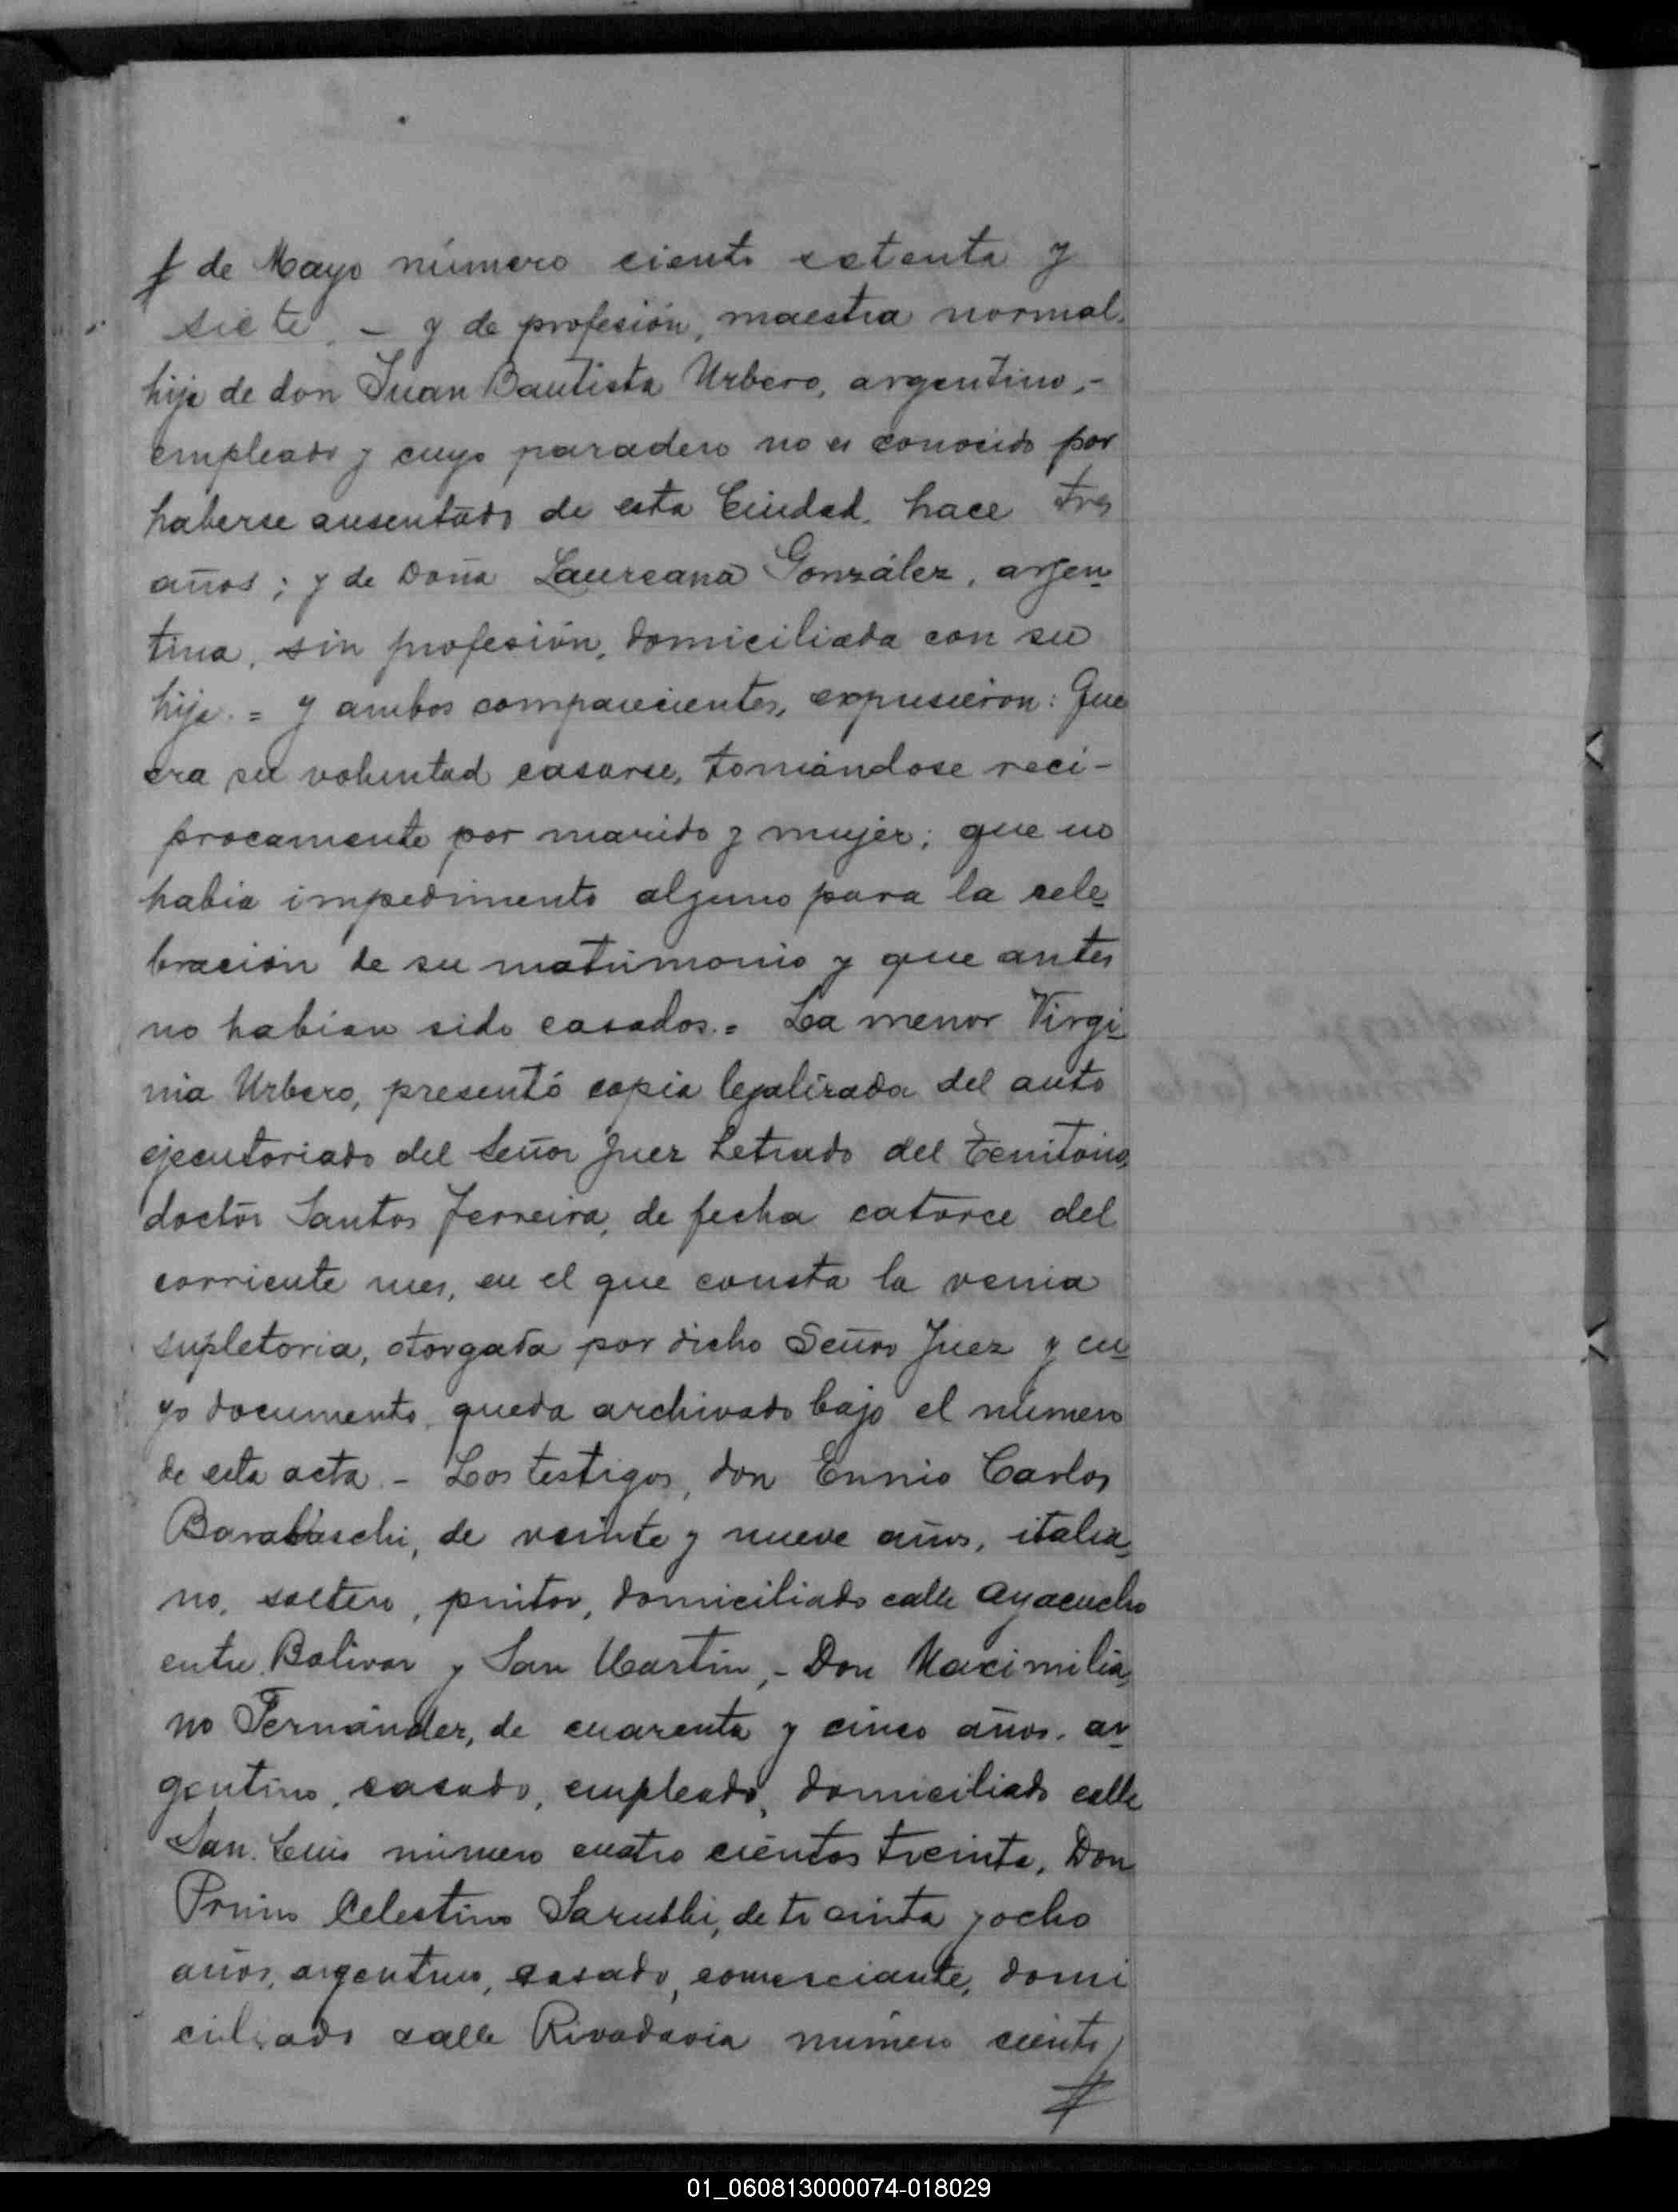 de Mayo número ciento setenta y
siete, - y de profesión, maestra normal,
hija de don Juan Bautista Urbero, argentino, -
empleado y cuyo paradero no es conocido por
haberse ausentado de esta Ciudad, hace tres
años; y de Doña Laureana González, argen-
tina, sin profesión, domiciliada con su
hija. = y ambos comparecientes, expusieron: Que
era su voluntad casarse, tomándose reci-
procamente por marido y mujer; que no
habia impedimento alguno para la cele-
bración de su matrimonio y que antes
no habian sido casados. = La menor Virgi-
nia Urbero, presentó copia legalizada del auto
ejecutoriado del Señor Juez Letrado del Territorio,
doctor Santos Ferreira, de fecha catorce del
corriente mes, en el que consta la venia
supletoria, otorgada por dicho Señor Juez y cu-
yo documento, queda archivado bajo el número
de esta acta. - Los testigos, don Ennio Carlos
Barabaschi, de veinte y nueve años, italia-
no, soltero, pintor, domiciliado calle Ayacucho
entre Bolivar y San Martin, - Don Maximilia-
no Fernández, de cuarenta y cinco años, ar-
gentino, casado, empleado, domiciliado calle
San Luis número cuatro cientos treinta, Don
Primo Celestino Sarubbi, de treinta y ocho
años, argentino, casado, comerciante, domi
ciliado calle Rivadavia número ciento
01_060813000074-018029